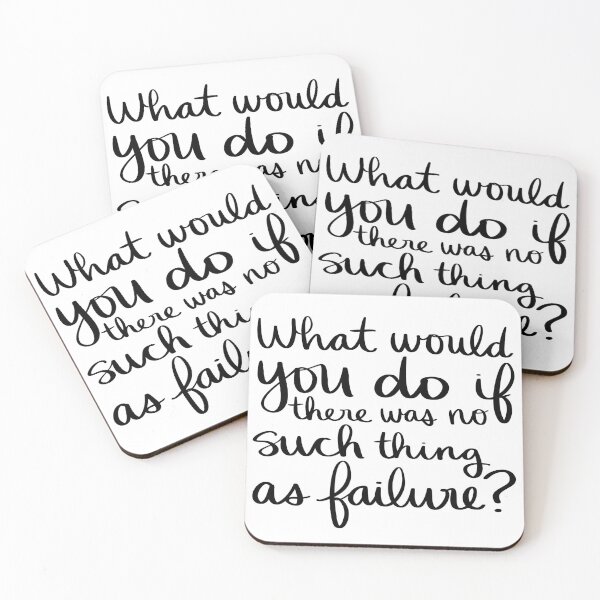 What would
you do if
there was
What would
you do if
there was no
such thing
What would
you do if
there was no
such
as
What would
you do if
there was no
such thing
as failure?